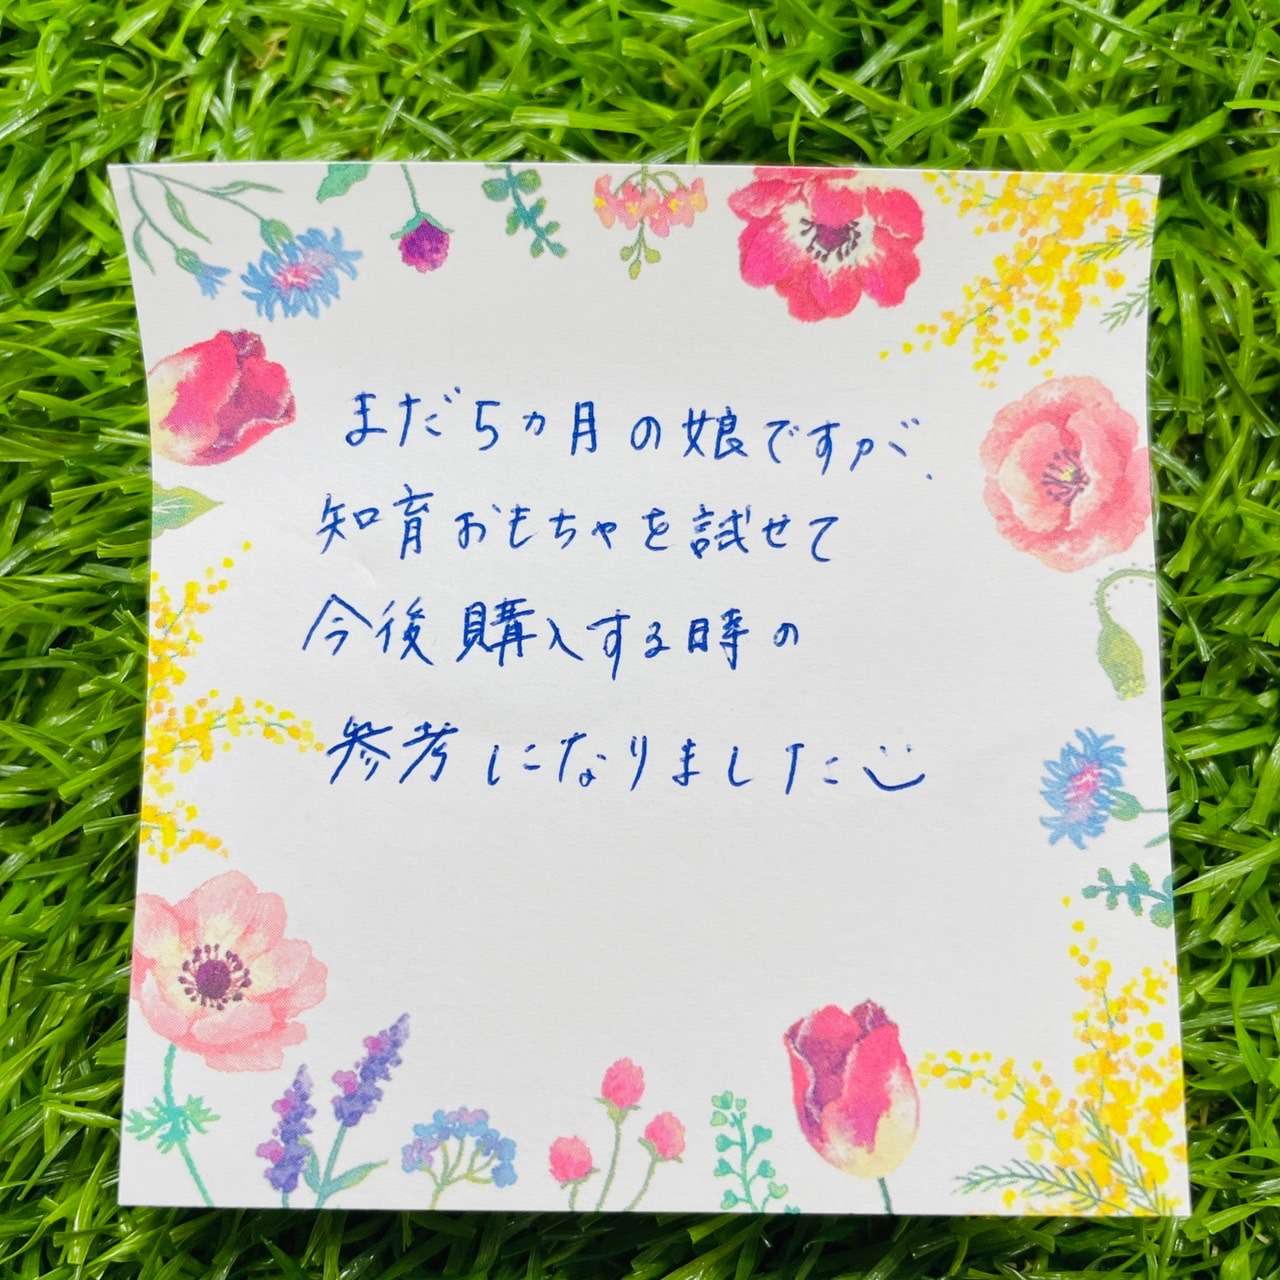 まだ5ヵ月の娘ですが、
知育おもちゃを試せて
今後購入する時の
参考になりました